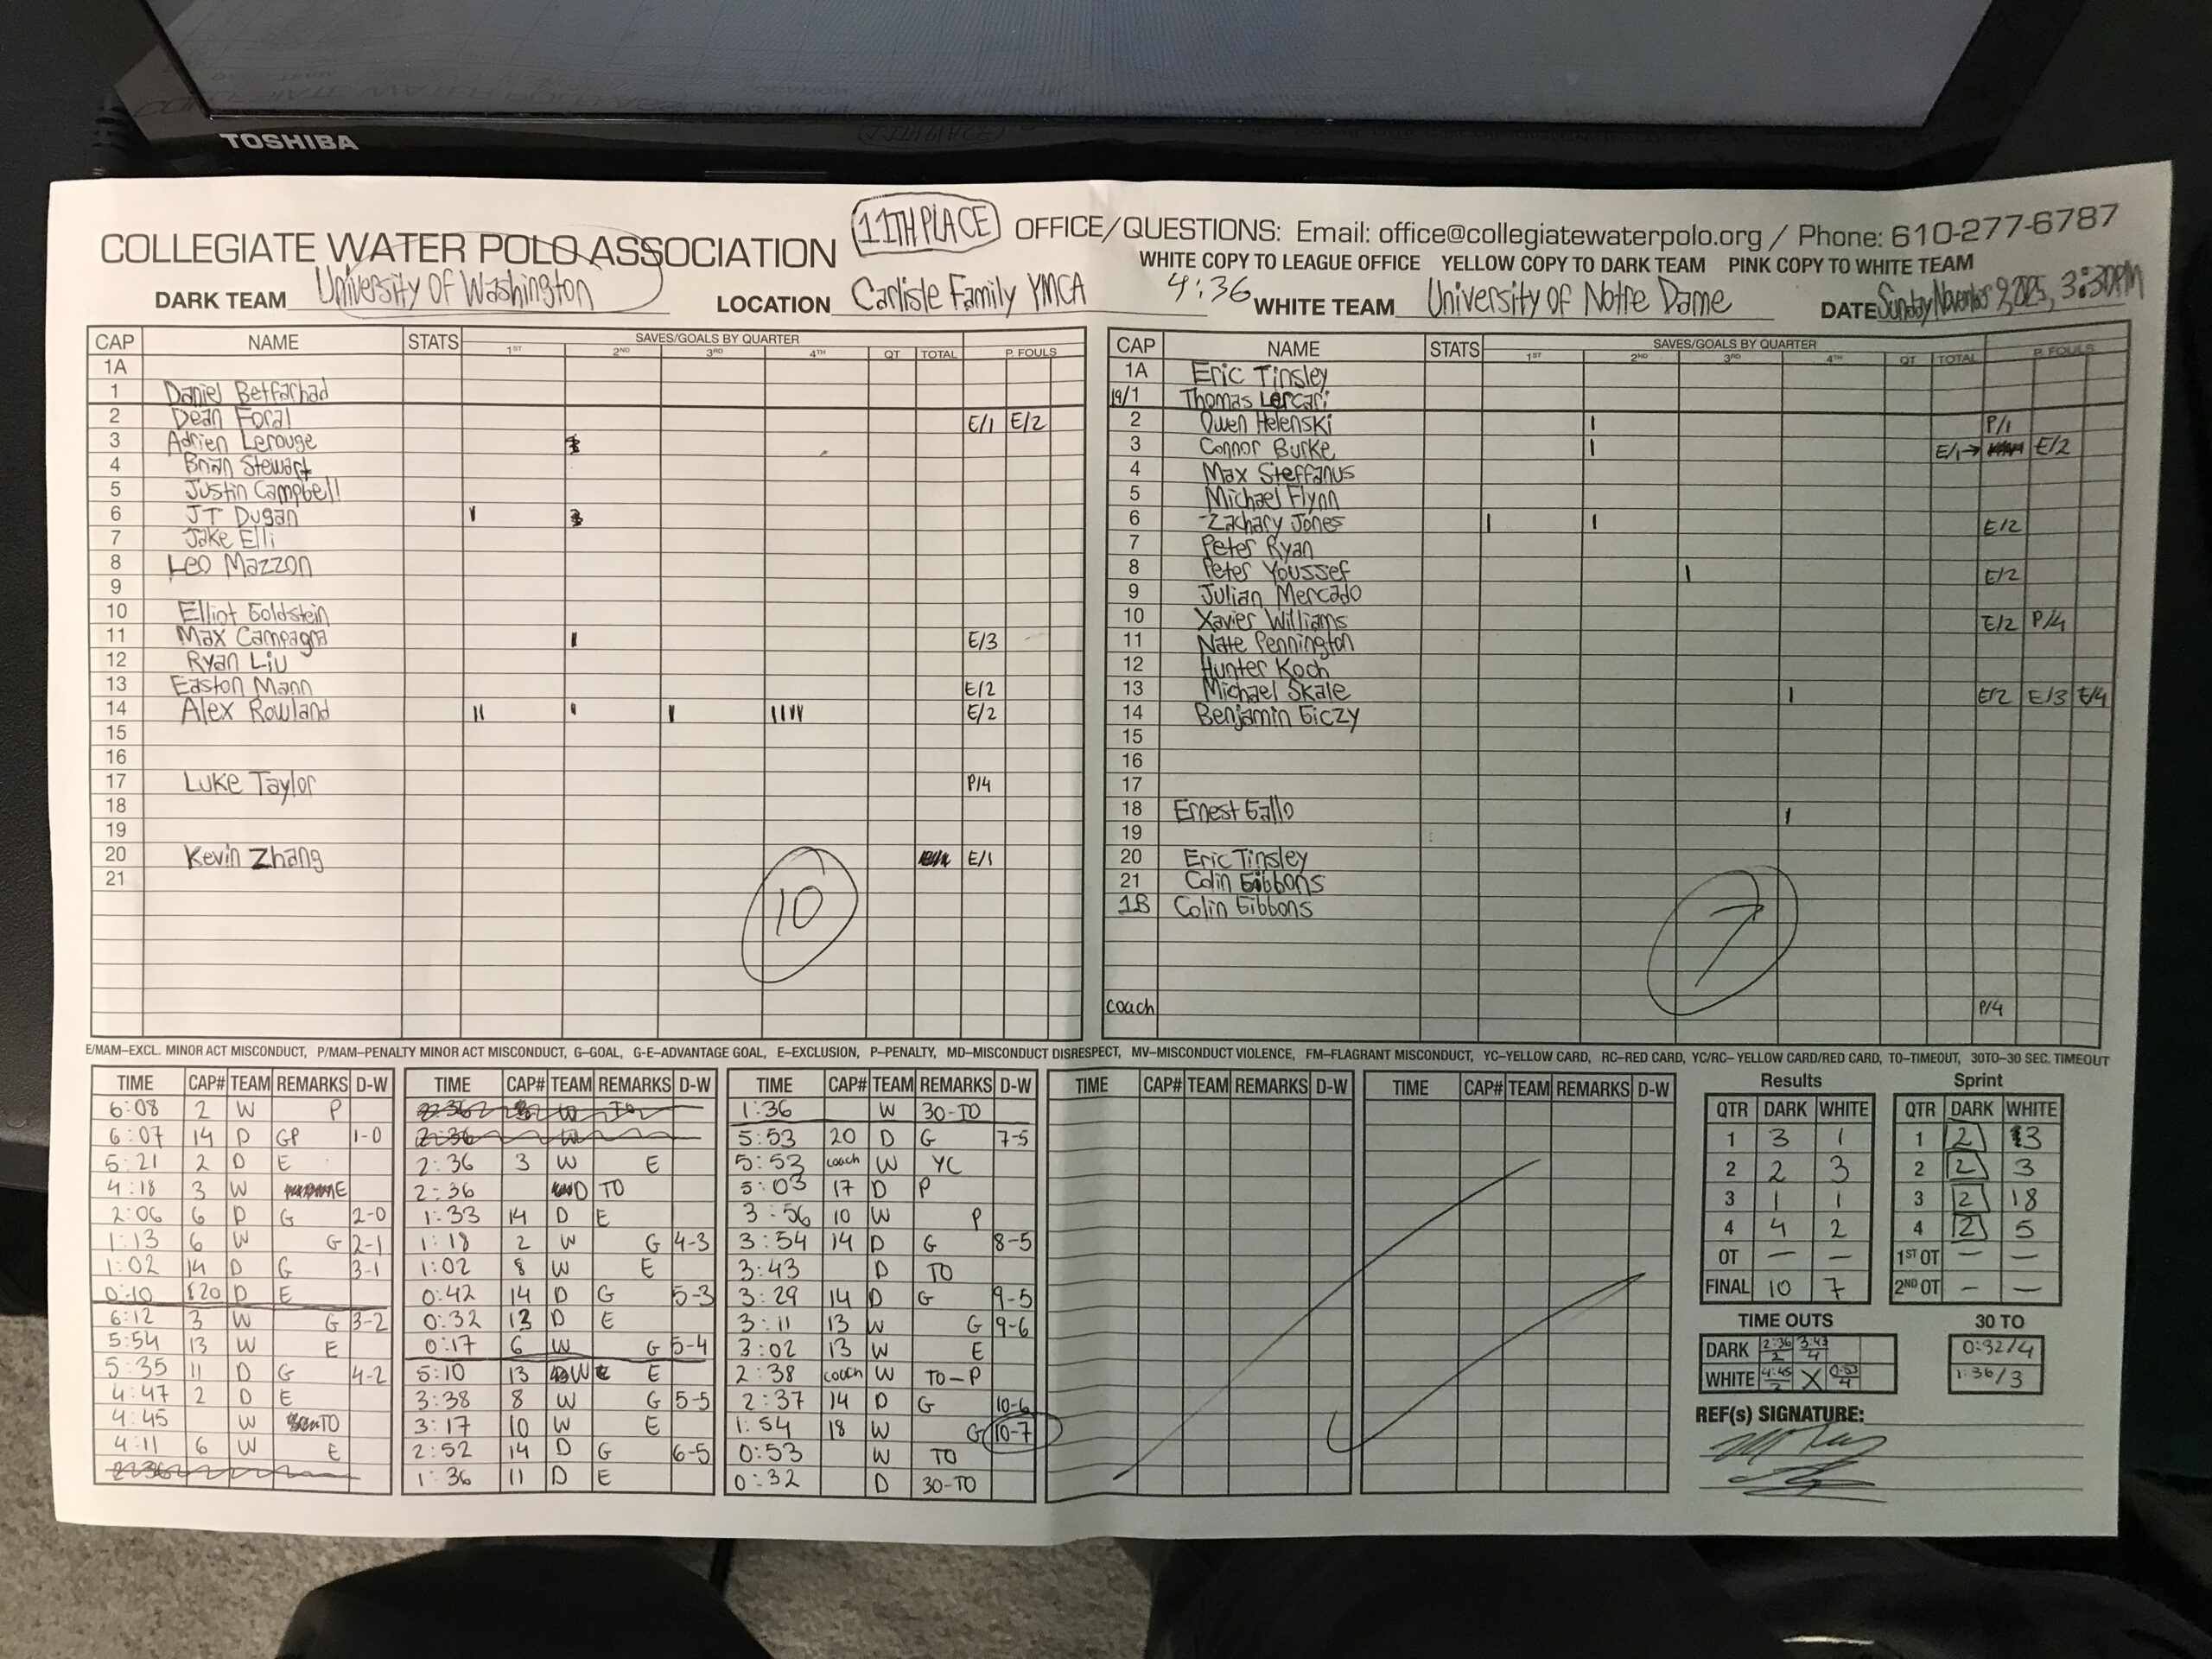 TOSHIBA
11TH PLACE
COLLEGIATE WATER POLO ASSOCIATION
OFFICE/QUESTIONS: Email: office@collegiatewaterpolo.org / Phone: 610-277-6787
WHITE COPY TO LEAGUE OFFICE YELLOW COPY TO DARK TEAM PINK COPY TO WHITE TEAM
DARK TEAM University Of Washington LOCATION Carlisle Family YMCA 4:36 WHITE TEAM University of Notre Dame DATE Sunday November 9, 2025, 3:30PM
CAP NAME STATS SAVES/GOALS BY QUARTER 1ST 2ND 3RD 4TH QT TOTAL P. FOULS
1A
1 Daniel Betfarhad
2 Dean Foral E/1 E/2
3 Adrien Lerouge
4 Brian Stewart
5 Justin Campbell
6 JT Dugan I
7 Jake Elli
8 Leo Mazzon
9
10 Elliot Goldstein
11 Max Campagna I E/3
12 Ryan Liu
13 Easton Mann E/2
14 Alex Rowland II I I IIII E/2
15
16
17 Luke Taylor P/4
18
19
20 Kevin Zhang E/1
21
10
CAP NAME STATS SAVES/GOALS BY QUARTER 1ST 2ND 3RD 4TH QT TOTAL P. FOULS
1A Eric Tinsley
19/1 Thomas Lercari
2 Owen Helenski I P/1
3 Connor Burke I E/1→ E/2
4 Max Steffanus
5 Michael Flynn
6 Zachary Jones I I E/2
7 Peter Ryan
8 Peter Youssef I E/2
9 Julian Mercado
10 Xavier Williams E/2 P/4
11 Nate Pennington
12 Hunter Koch
13 Michael Skale I E/2 E/3 E/4
14 Benjamin Giczy
15
16
17
18 Ernest Gallo I
19
20 Eric Tinsley
21 Colin Gibbons
1B Colin Gibbons
7
coach P/4
E/MAM–EXCL. MINOR ACT MISCONDUCT, P/MAM–PENALTY MINOR ACT MISCONDUCT, G–GOAL, G-E–ADVANTAGE GOAL, E–EXCLUSION, P–PENALTY, MD–MISCONDUCT DISRESPECT, MV–MISCONDUCT VIOLENCE, FM–FLAGRANT MISCONDUCT, YC–YELLOW CARD, RC–RED CARD, YC/RC–YELLOW CARD/RED CARD, TO–TIMEOUT, 30TO–30 SEC. TIMEOUT
TIME CAP# TEAM REMARKS D-W
6:08 2 W P
6:07 14 D GP 1-0
5:21 2 D E
4:18 3 W E
2:06 6 D G 2-0
1:13 6 W G 2-1
1:02 14 D G 3-1
0:10 20 D E
6:12 3 W G 3-2
5:54 13 W E
5:35 11 D G 4-2
4:47 2 D E
4:45 W TO
4:11 6 W E
2:36
TIME CAP# TEAM REMARKS D-W
2:36 W TO
2:36 W
2:36 3 W E
2:36 D TO
1:33 14 D E
1:18 2 W G 4-3
1:02 8 W E
0:42 14 D G 5-3
0:32 13 D E
0:17 6 W G 5-4
5:10 13 W E
3:38 8 W G 5-5
3:17 10 W E
2:52 14 D G 6-5
1:36 11 D E
TIME CAP# TEAM REMARKS D-W
1:36 W 30-TO
5:53 20 D G 7-5
5:53 coach W YC
5:03 17 D P
3:56 10 W P
3:54 14 D G 8-5
3:43 D TO
3:29 14 D G 9-5
3:11 13 W G 9-6
3:02 13 W E
2:38 coach W TO-P
2:37 14 D G 10-6
1:54 18 W G 10-7
0:53 W TO
0:32 D 30-TO
TIME CAP# TEAM REMARKS D-W
TIME CAP# TEAM REMARKS D-W
Results
QTR DARK WHITE
1 3 1
2 2 3
3 1 1
4 4 2
OT — —
FINAL 10 7
Sprint
QTR DARK WHITE
1 2 3
2 2 3
3 2 18
4 2 5
1ST OT — —
2ND OT — —
TIME OUTS
DARK 2:36/2 3:43/4
WHITE 4:45/2 X 0:53/4
30 TO
0:32/4
1:36/3
REF(s) SIGNATURE: